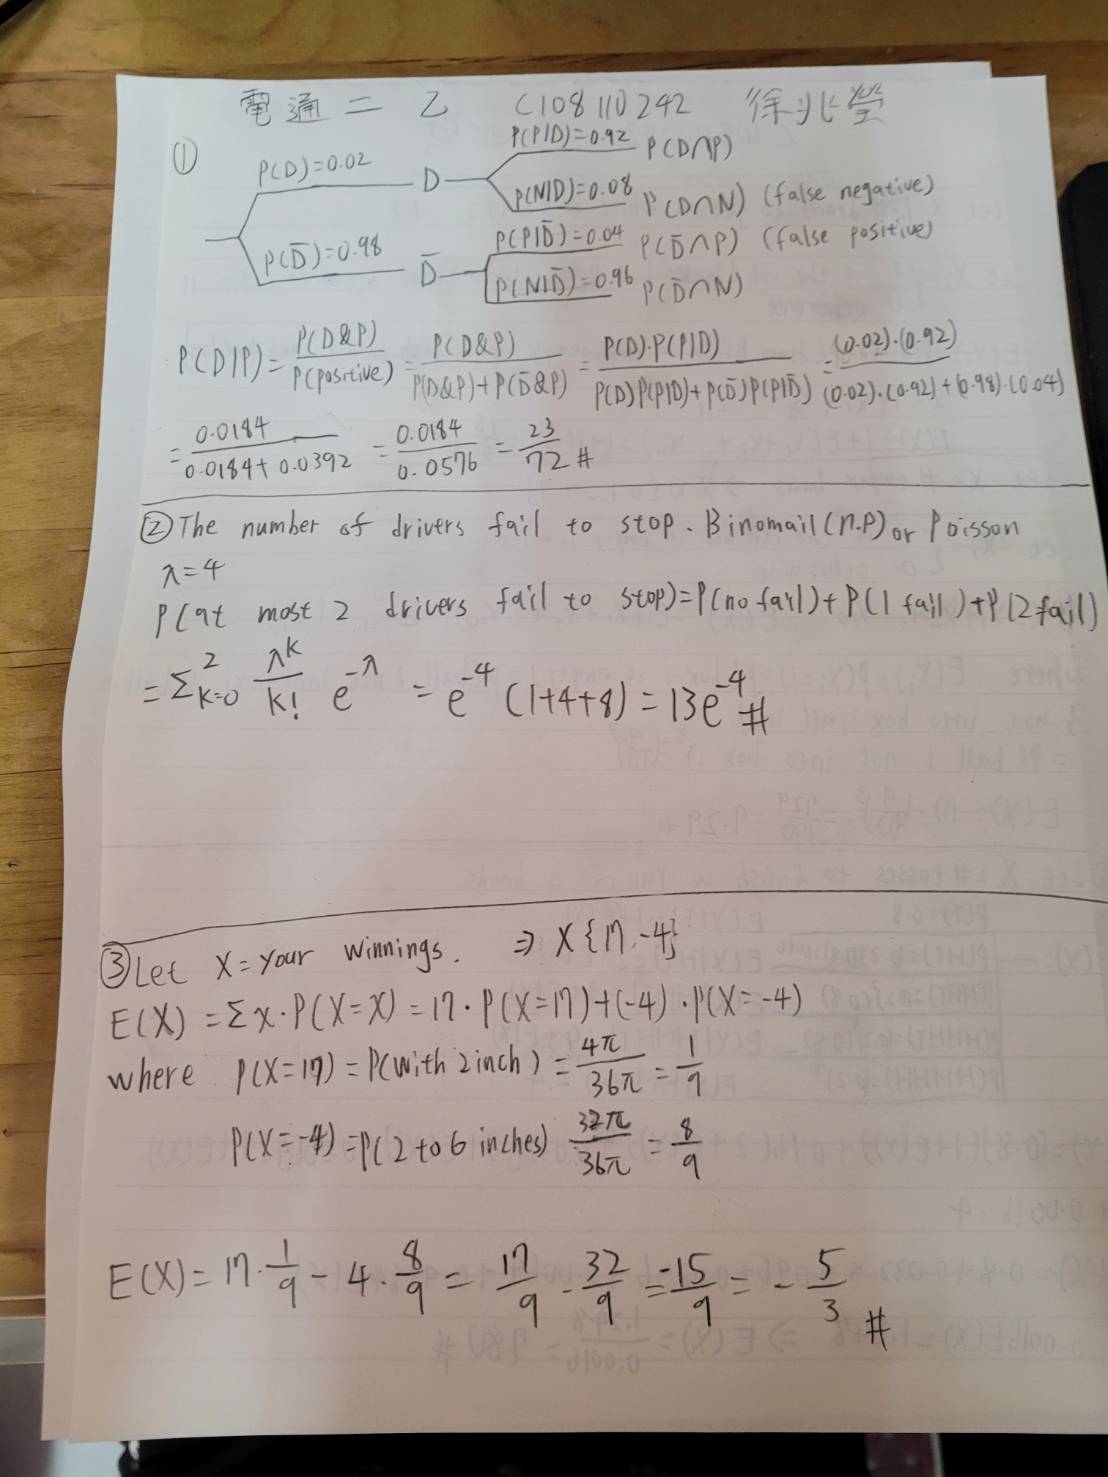 電通二乙 C108110242 徐兆瑩
① P(D)=0.02 D P(P|D)=0.92 P(D∩P)
P(N|D)=0.08 P(D∩N) (false negative)
P(D̄)=0.98 D̄ P(P|D̄)=0.04 P(D̄∩P) (false positive)
P(N|D̄)=0.96 P(D̄∩N)
P(D|P)=P(D&P)/P(positive)=P(D&P)/P(D&P)+P(D̄&P)=P(D)·P(P|D)/P(D)P(P|D)+P(D̄)P(P|D̄)=(0.02)·(0.92)/(0.02)·(0.92)+(0.98)·(0.04)
=0.0184/0.0184+0.0392=0.0184/0.0576=23/72 #
② The number of drivers fail to stop. Binomail(n.p) or Poisson
λ=4
P(at most 2 drivers fail to stop)=P(no fail)+P(1 fail)+P(2 fail)
=Σ²ₖ₌₀ λᵏ/k! e^-λ = e^-4 (1+4+8)=13e^-4 #
③ Let X=your winnings. ⇒ X{17,-4}
E(X)=Σx·P(X=x)=17·P(X=17)+(-4)·P(X=-4)
where P(X=17)=P(with 2 inch)=4π/36π=1/9
P(X=-4)=P(2 to 6 inches) 32π/36π=8/9
E(X)=17·1/9-4·8/9=17/9-32/9=-15/9=-5/3 #